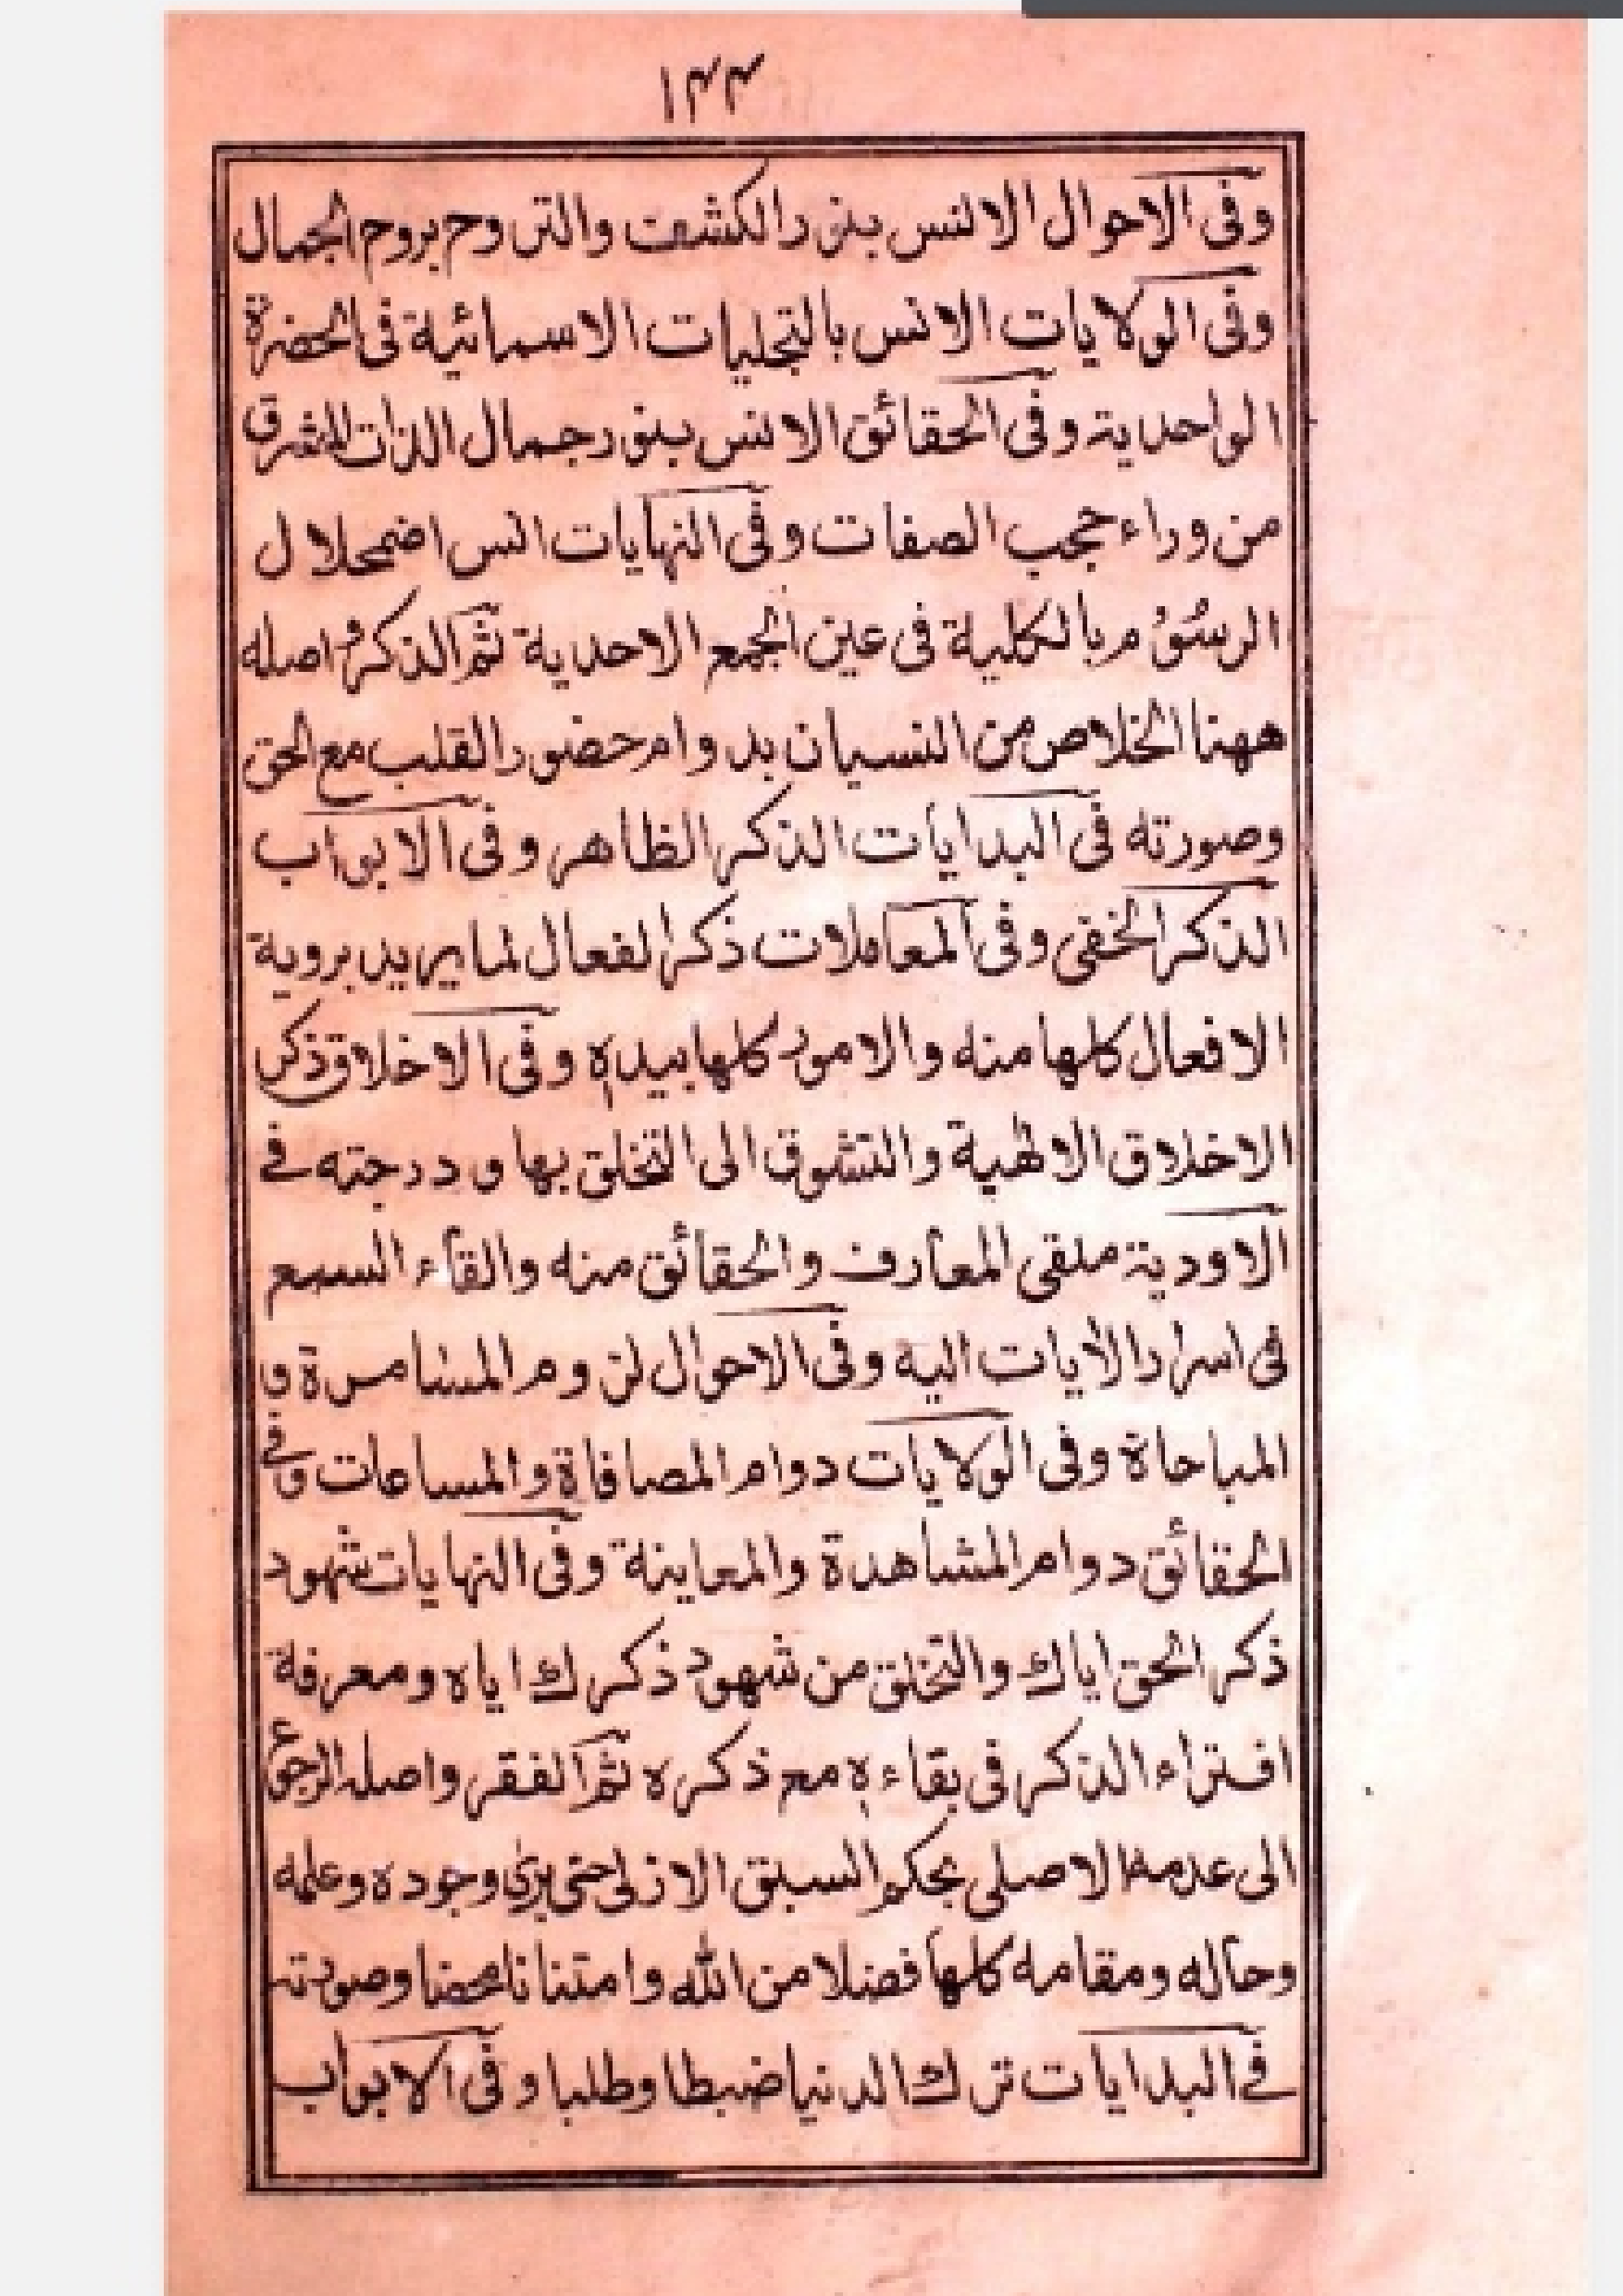 ١٤٤
وفى الاحوال الانس بنور الكشف والتروح بروح الجمال
وفى الولايات الانس بالتجليات الاسمائية فى الحضرة
الواحدية وفى الحقائق الانس بنور جمال الذات المشرق
من وراء حجب الصفات وفى النهايات انس اضمحلال
الرسُوُم بالكلية فى عين الجمع الاحدية ثم الذكرُ واصله
ههنا الخلاص من النسيان بدوام حضور القلب مع الحق
وصورته فى البدايات الذكر الظاهر وفى الابواب
الذكر الخفى وفى المعاملات ذكر الفعال لما يريد بروية
الافعال كلها منه والامور كلها بيده وفى الاخلاق ذكر
الاخلاق الالهية والتشوق الى التخلق بها ودرجته فے
الاودية ملقى المعارف والحقائق منه والقاء السمع
فى اسرار الآيات اليه وفى الاحوال لزوم المسامرة و
المباحاة وفى الولايات دوام المصافاة والمسامات وفے
الحقائق دوام المشاهدة والمعاينة وفى النهايات شهود
ذكر الحق اياك والتخلق من شهود ذكرك اياه ومعرفة
افتراء الذكر فى بقاءه مع ذكره ثم الفقر واصله الرجوع
الى عدمه الاصلى بحكم السبق الازلى حتى يرى وجوده وعلمه
وحاله ومقامه كلها فضلا من الله وامتنانا محضا وصورته
فے البدايات ترك الدنيا ضبطا وطلبا وفى الابواب